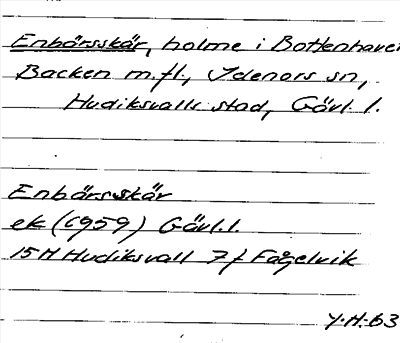 Enbärsskär, holme i Bottenhavet
Backen m.fl., Idenors sn,
Hudiksvalls stad, Gävl. l.
Enbärsskär
ek (1959) Gävl. l.
15H Hudiksvall 7f Fågelvik
Y.H.-63